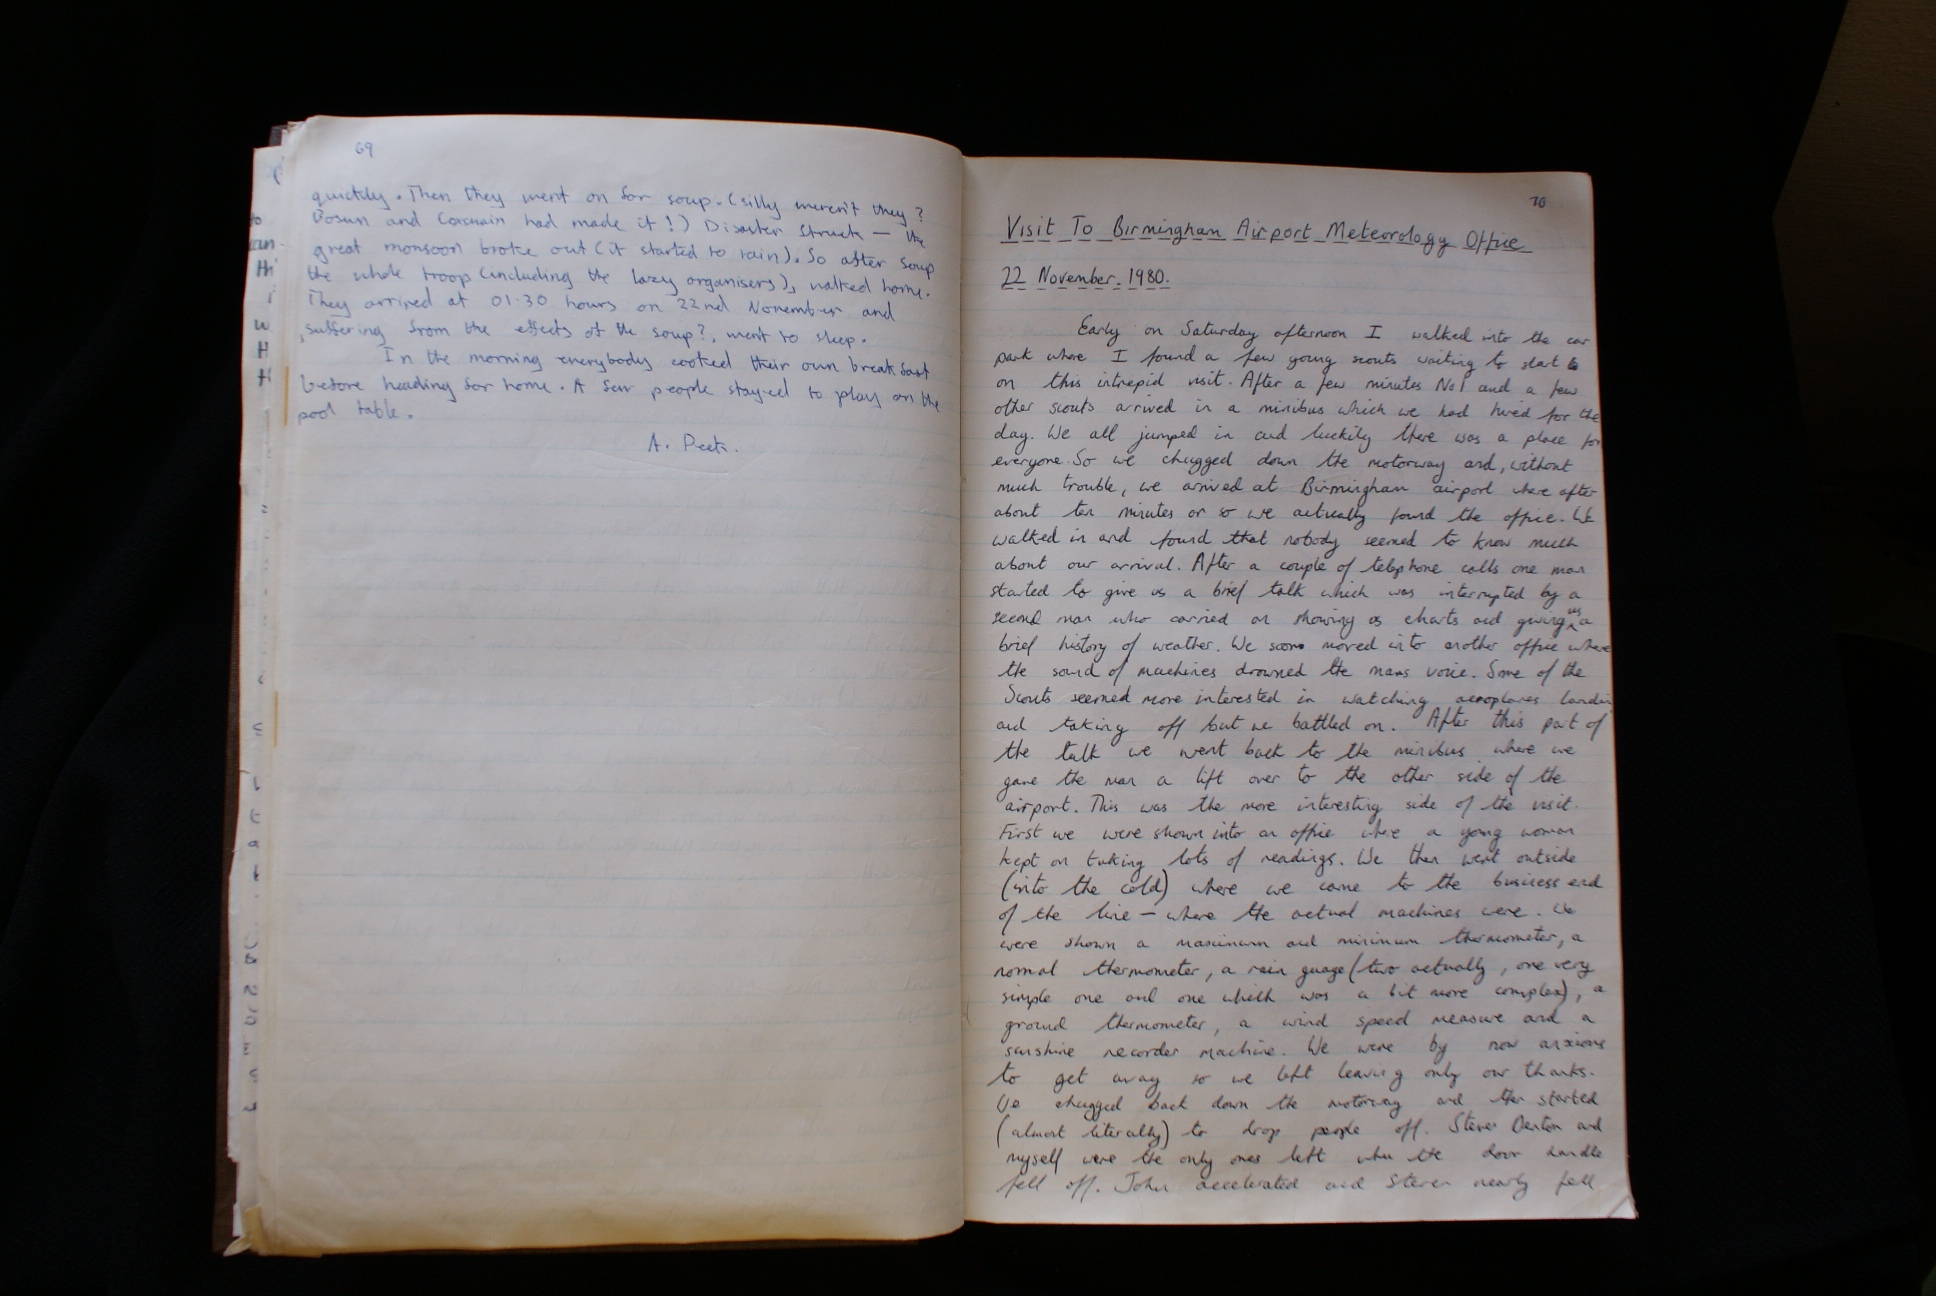 69
quickly. Then they went on for soup. (silly weren't they?
Bosun and Coxswain had made it!) Disaster Struck — the
great monsoon broke out (it started to rain). So after soup
the whole troop (including the lazy organisers), walked home.
They arrived at 01.30 hours on 22nd November and
, suffering from the effects of the soup?, went to sleep.
In the morning everybody cooked their own breakfast
before heading for home. A few people stayed to play on the
pool table.
A. Peet.
70
Visit To Birmingham Airport Meteorology Office
22 November. 1980.
Early on Saturday afternoon I walked into the car
park where I found a few young scouts waiting to start
on this intrepid visit. After a few minutes No1 and a few
other scouts arrived in a minibus which we had hired for the
day. We all jumped in and luckily there was a place for
everyone. So we chugged down the motorway and, without
much trouble, we arrived at Birmingham airport where after
about ten minutes or so we actually found the office. We
walked in and found that nobody seemed to know much
about our arrival. After a couple of telephone calls one man
started to give us a brief talk which was interrupted by a
second man who carried on showing us charts and giving us a
brief history of weather. We soon moved into another office where
the sound of machines drowned the mans voice. Some of the
Scouts seemed more interested in watching aeroplanes landin
and taking off but we battled on. After this part of
the talk we went back to the minibus where we
gave the man a lift over to the other side of the
airport. This was the more interesting side of the visit.
First we were shown into an office where a young woman
kept on taking lots of readings. We then went outside
(into the cold) where we came to the business end
of the line — where the actual machines were. We
were shown a maximum and minimum thermometer, a
normal thermometer, a rain guage (two actually, one very
simple one and one which was a bit more complex), a
ground thermometer, a wind speed measure and a
sunshine recorder machine. We were by now anxious
to get away so we left leaving only our thanks.
We chugged back down the motorway and then started
(almost literally) to drop people off. Steven Denton and
myself were the only ones left when the door handle
fell off. John accelerated and Steven nearly fell